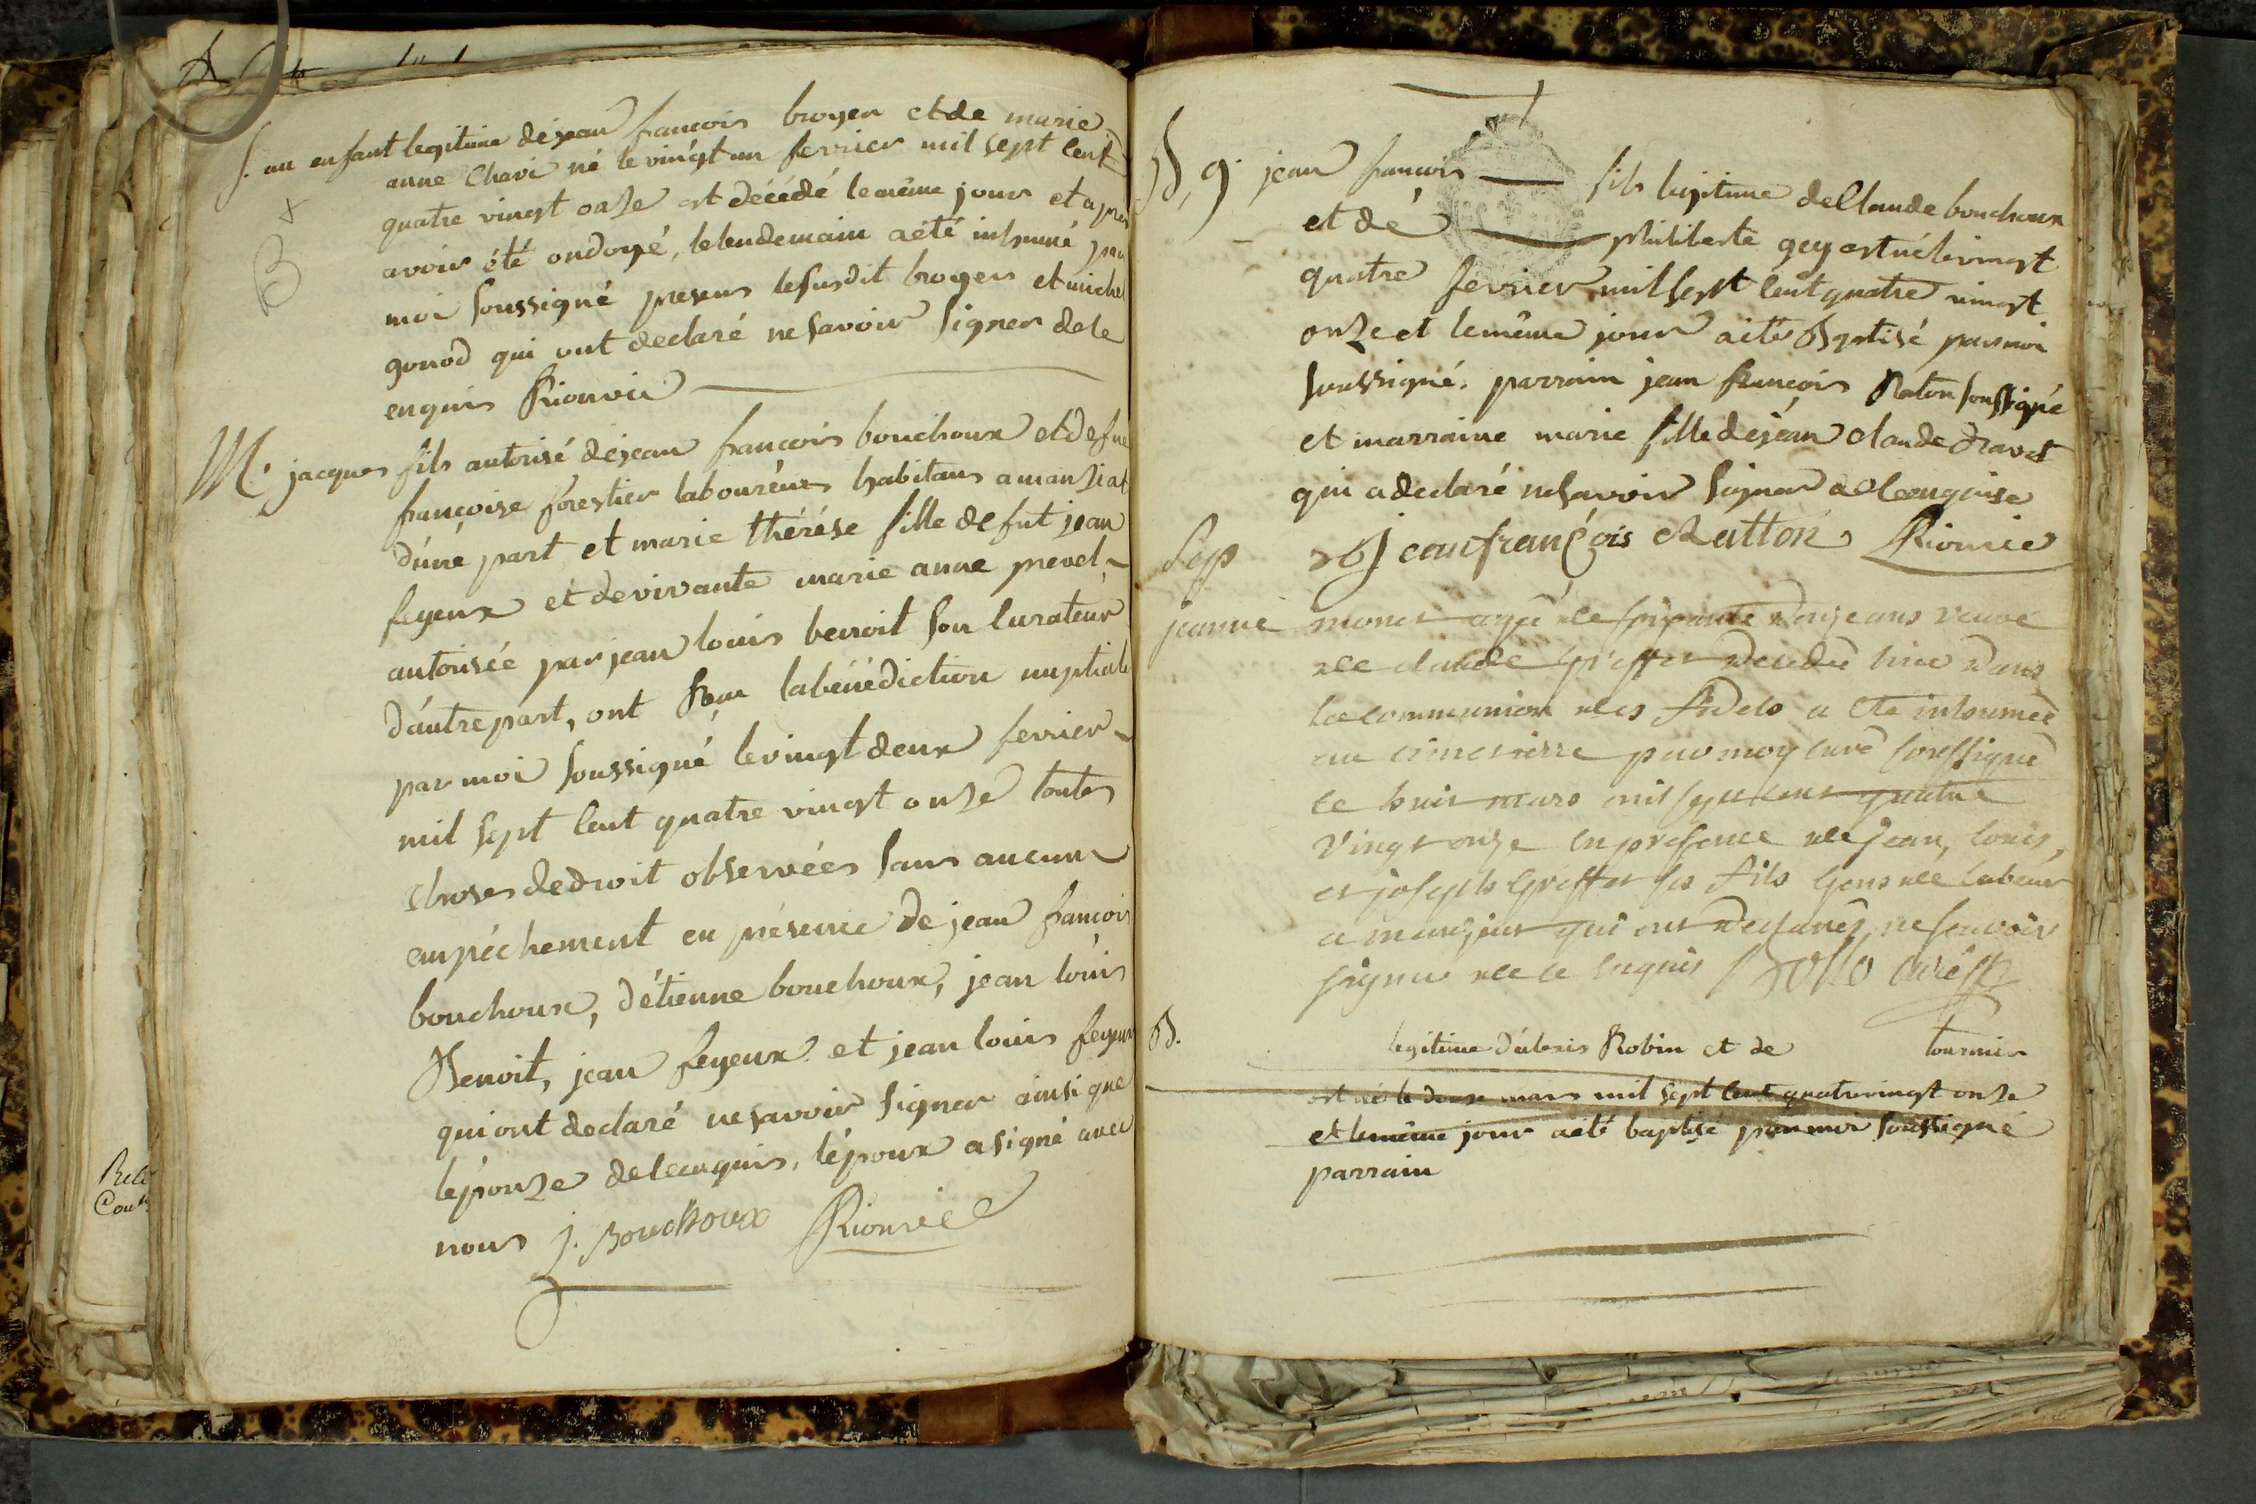 S. un enfant legitime déjean francois broyer et de marie
anne Chavi né le vingt un fevrier mil sept Cent
quatre vingt onze est décédé le même jour et apres
avoir été ondoyé, le lendemain a été inhumé par
moi soussigné presens le susdit broyer et michel
gonod qui ont declaré ne savoir signer de ce
enquis Rionvie
M. jacques fils autorisé déjean francois bouchoux et de fue
françoise forestier laboureurs habitans a manziat
d'une part, et marie thérése fille de fut jean
feyeux et de vivante marie anne prevel
autorisée par jean louis benoit son Curateur
d'autre part, ont Reçu la bénédiction nuptiale
par moi soussigné le vingt deux fevrier
mil sept Cent quatre vingt onze toutes
choses de droit observées sans aucun
empéchement en présence de jean francois
bouchoux, d'étienne bouchoux, jean louis
Benoit, jean feyeux et jean louis feyeux
qui ont declaré ne savoir signer ainsi que
l'épouze de ce enquis, l'époux a signé avec
nous J. Bouchoux Rionvie
B, g. jean francois fils legitime de Claude bouchoux
et dé philiberte gey est né le vingt
quatre fevrier mil sept Cent quatre vingt
onze et le même jour a été Baptisé par moi
soussigné, parrain jean françois Raton soussigné
et marraine marie fille déjean claude Dravet
qui a declaré ne savoir signer de ce enquise
jean françois Ratton Rionvie
Sep
jeanne monet agée de soixante douze ans veuve
de claude greffet decedée hier dans
la communion des fidels a ete inhumée
au cimetierre par moy curé soussigné
le huit mars mil sept cent quatre
vingt onze en presence de jean, louis,
et joseph greffet ses fils gens de labeur
a manziat qui ont declarés ne scavoir
signer de ce enquis curé
B. legitime d'alexis Robin et de tournier
est né le douze mars mil sept Cent quatrevingt onze
et le même jour a été baptisé par moi soussigné
parrain